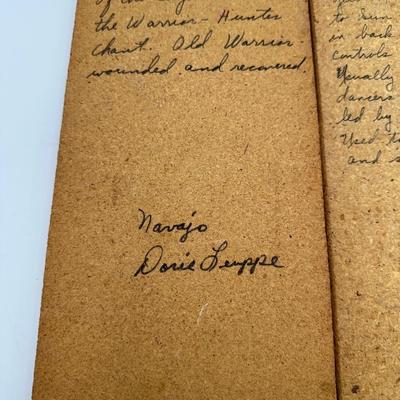 the Warrior-Hunter
chant. Old Warrior-
wounded and recovered.
Navajo
Doris Leuppe
to Sun
in back
controls
Usually
dancers
led by
Used to
and s